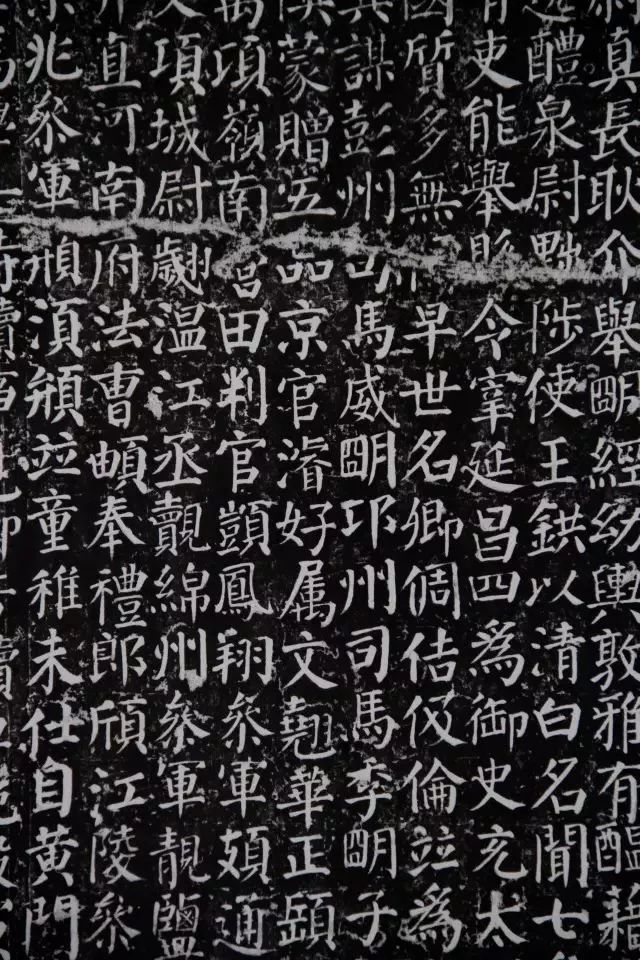 真長耿介舉明經幼輿敦雅有醞藉
醴泉尉黜陟使王鉷以清白名聞七
吏能舉縣令宰延昌四為御史充太
國質多無祿早世名卿倜佶伋倫並為
謀彭州司馬威明邛州司馬季明子
蒙贈五品京官濬好屬文翹華正頤
萬項嶺南營田判官顗鳳翔參軍頗通
項城尉翽溫江丞覿綿州參軍靚鹽
直河南府法曹頔奉禮郎頎江陵參
兆參軍頍須頲並童稚未仕自黃門